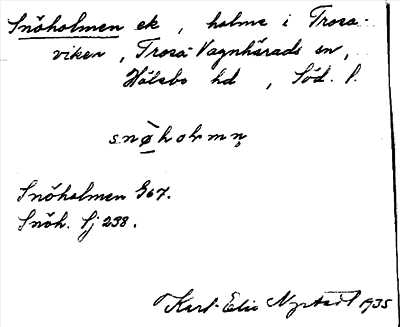 Snöholmen ek , holme i Trosa-
viken , Trosa-Vagnhärads sn ,
Hölebo hd , Söd. l.
snøholmn̥
Snöholmen G 67.
Snöh. Sj 238.
Karl-Eric 1935